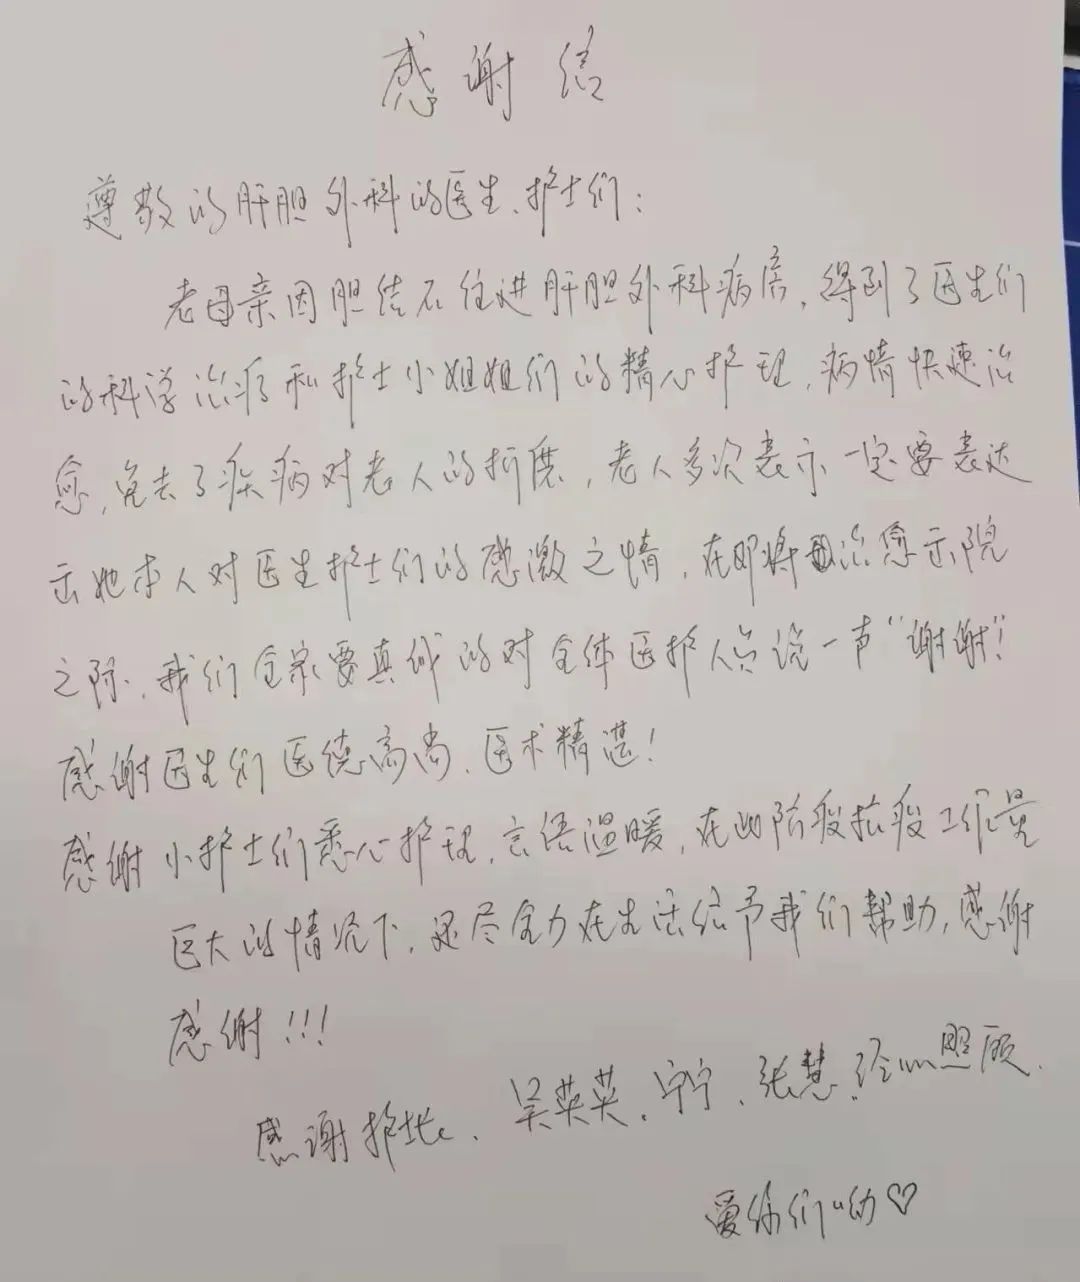 感谢信
尊敬的肝胆外科的医生、护士们：
老母亲因胆结石住进肝胆外科病房，得到了医生们
的科学治疗和护士小姐姐们的精心护理，病情快速治
愈，免去了疾病对老人的折磨，老人多次表示一定要表达
出她本人对医生护士们的感激之情，在即将治愈出院
之际，我们全家要真诚的对全体医护人员说一声“谢谢”！
感谢医生们医德高尚、医术精湛！
感谢小护士们悉心护理，言语温暖，在此阶段抗疫工作量
巨大的情况下，还尽全力在生活给予我们帮助，感谢
感谢！！！
感谢护士长、吴英英、宁宁、张慧、经心照顾、
爱你们呦♡